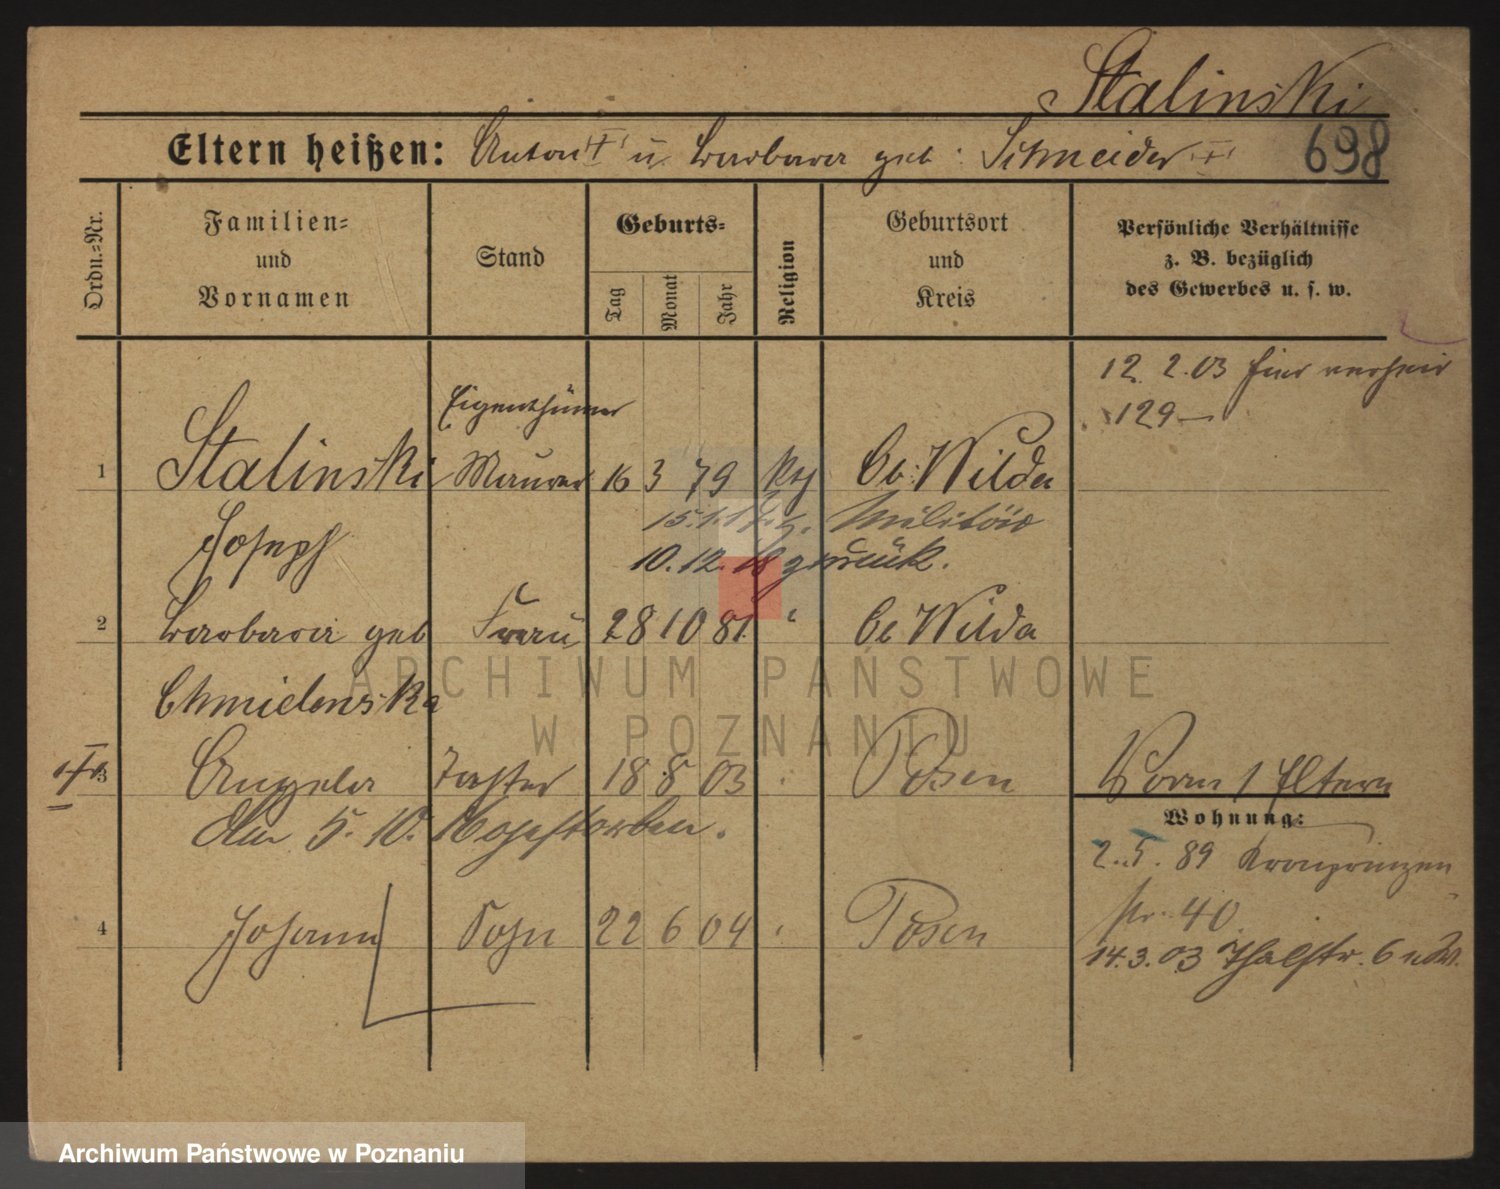 Stalinski
Eltern heißen: Anton u Barbara geb. Schneider
698
Ordn.=Nr.
Familien=
und
Vornamen
Stand
Geburts=
Tag
Monat
Jahr
Religion
Geburtsort
und
Kreis
Persönliche Verhältnisse
z. B. bezüglich
des Gewerbes u. s. w.
12. 2. 03 hier verheir
129
Eigenthümer
1 Stalinski Maurer 16 3 79 kth Ob: Wilda
15.1.17 z. Militär
Joseph
10.12.18 zurück.
2 Barbara geb Frau 28 10 81 " Ob Wilda
Chmielenska
3 Angela Tochter 18 8 03 " Posen
Am 5. 10. gestorben.
Vorm / Eltern
Wohnung:
2. 5. 89 Kronprinzen
str. 40
4 Johann Sohn 22 6 04 " Posen
14.3.03 Thalstr. 6 u W.
ARCHIWUM PAŃSTWOWE
W POZNANIU
Archiwum Państwowe w Poznaniu